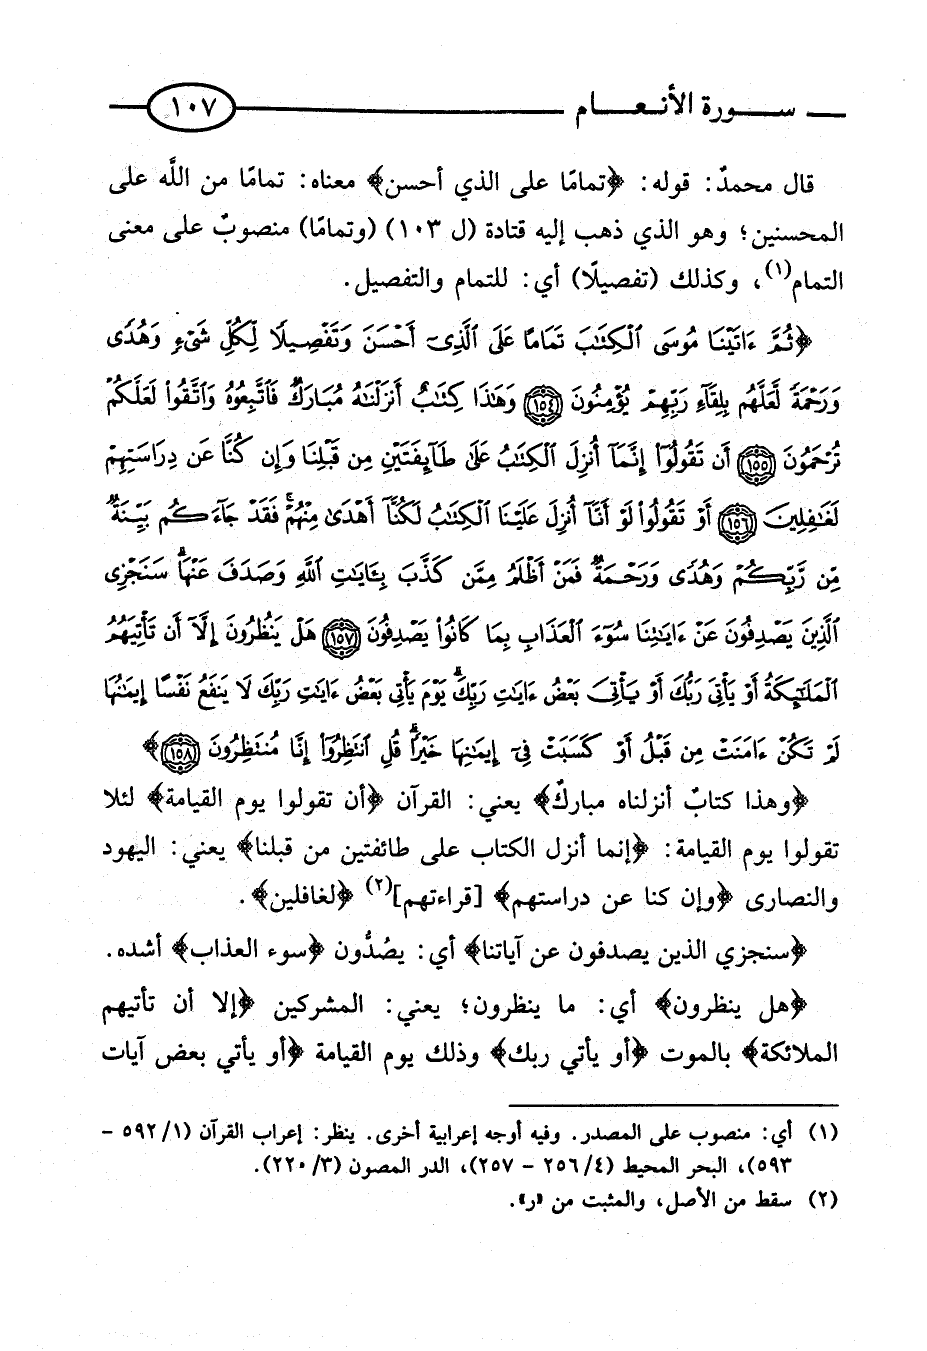 سورة الأنعام ١٠٧
قال محمدٌ: قوله: ﴿تمامًا على الذي أحسن﴾ معناه: تمامًا من اللَّه على
المحسنين؛ وهو الذي ذهب إليه قتادة (ل ١٠٣) (وتمامًا) منصوبٌ على معنى
التمام(١)، وكذلك (تفصيلًا) أي: للتمام والتفصيل.
﴿ثُمَّ ءَاتَيْنَا مُوسَى ٱلْكِتَٰبَ تَمَامًا عَلَى ٱلَّذِىٓ أَحْسَنَ وَتَفْصِيلًا لِّكُلِّ شَىْءٍ وَهُدًى
وَرَحْمَةً لَّعَلَّهُم بِلِقَآءِ رَبِّهِمْ يُؤْمِنُونَ ١٥٤ وَهَٰذَا كِتَٰبٌ أَنزَلْنَٰهُ مُبَارَكٌ فَٱتَّبِعُوهُ وَٱتَّقُوا۟ لَعَلَّكُمْ
تُرْحَمُونَ ١٥٥ أَن تَقُولُوٓا۟ إِنَّمَآ أُنزِلَ ٱلْكِتَٰبُ عَلَىٰ طَآئِفَتَيْنِ مِن قَبْلِنَا وَإِن كُنَّا عَن دِرَاسَتِهِمْ
لَغَٰفِلِينَ ١٥٦ أَوْ تَقُولُوا۟ لَوْ أَنَّآ أُنزِلَ عَلَيْنَا ٱلْكِتَٰبُ لَكُنَّآ أَهْدَىٰ مِنْهُمْ ۚ فَقَدْ جَآءَكُم بَيِّنَةٌ
مِّن رَّبِّكُمْ وَهُدًى وَرَحْمَةٌ ۚ فَمَنْ أَظْلَمُ مِمَّن كَذَّبَ بِـَٔايَٰتِ ٱللَّهِ وَصَدَفَ عَنْهَا ۗ سَنَجْزِى
ٱلَّذِينَ يَصْدِفُونَ عَنْ ءَايَٰتِنَا سُوٓءَ ٱلْعَذَابِ بِمَا كَانُوا۟ يَصْدِفُونَ ١٥٧ هَلْ يَنظُرُونَ إِلَّآ أَن تَأْتِيَهُمُ
ٱلْمَلَٰٓئِكَةُ أَوْ يَأْتِىَ رَبُّكَ أَوْ يَأْتِىَ بَعْضُ ءَايَٰتِ رَبِّكَ ۗ يَوْمَ يَأْتِى بَعْضُ ءَايَٰتِ رَبِّكَ لَا يَنفَعُ نَفْسًا إِيمَٰنُهَا
لَمْ تَكُنْ ءَامَنَتْ مِن قَبْلُ أَوْ كَسَبَتْ فِىٓ إِيمَٰنِهَا خَيْرًا ۗ قُلِ ٱنتَظِرُوٓا۟ إِنَّا مُنتَظِرُونَ ١٥٨﴾
﴿وهذا كتابٌ أنزلناه مباركٌ﴾ يعني: القرآن ﴿أن تقولوا يوم القيامة﴾ لئلا
تقولوا يوم القيامة: ﴿إنما أنزل الكتاب على طائفتين من قبلنا﴾ يعني: اليهود
والنصارى ﴿وإن كنا عن دراستهم﴾ [قراءتهم](٢) ﴿لغافلين﴾.
﴿سنجزي الذين يصدفون عن آياتنا﴾ أي: يصُدُّون ﴿سوء العذاب﴾ أشده.
﴿هل ينظرون﴾ أي: ما ينظرون؛ يعني: المشركين ﴿إلا أن تأتيهم
الملائكة﴾ بالموت ﴿أو يأتي ربك﴾ وذلك يوم القيامة ﴿أو يأتي بعض آيات
(١) أي: منصوب على المصدر. وفيه أوجه إعرابية أخرى. ينظر: إعراب القرآن (١/ ٥٩٢ -
٥٩٣)، البحر المحيط (٤/ ٢٥٦ - ٢٥٧)، الدر المصون (٣/ ٢٢٠).
(٢) سقط من الأصل، والمثبت من «ر».